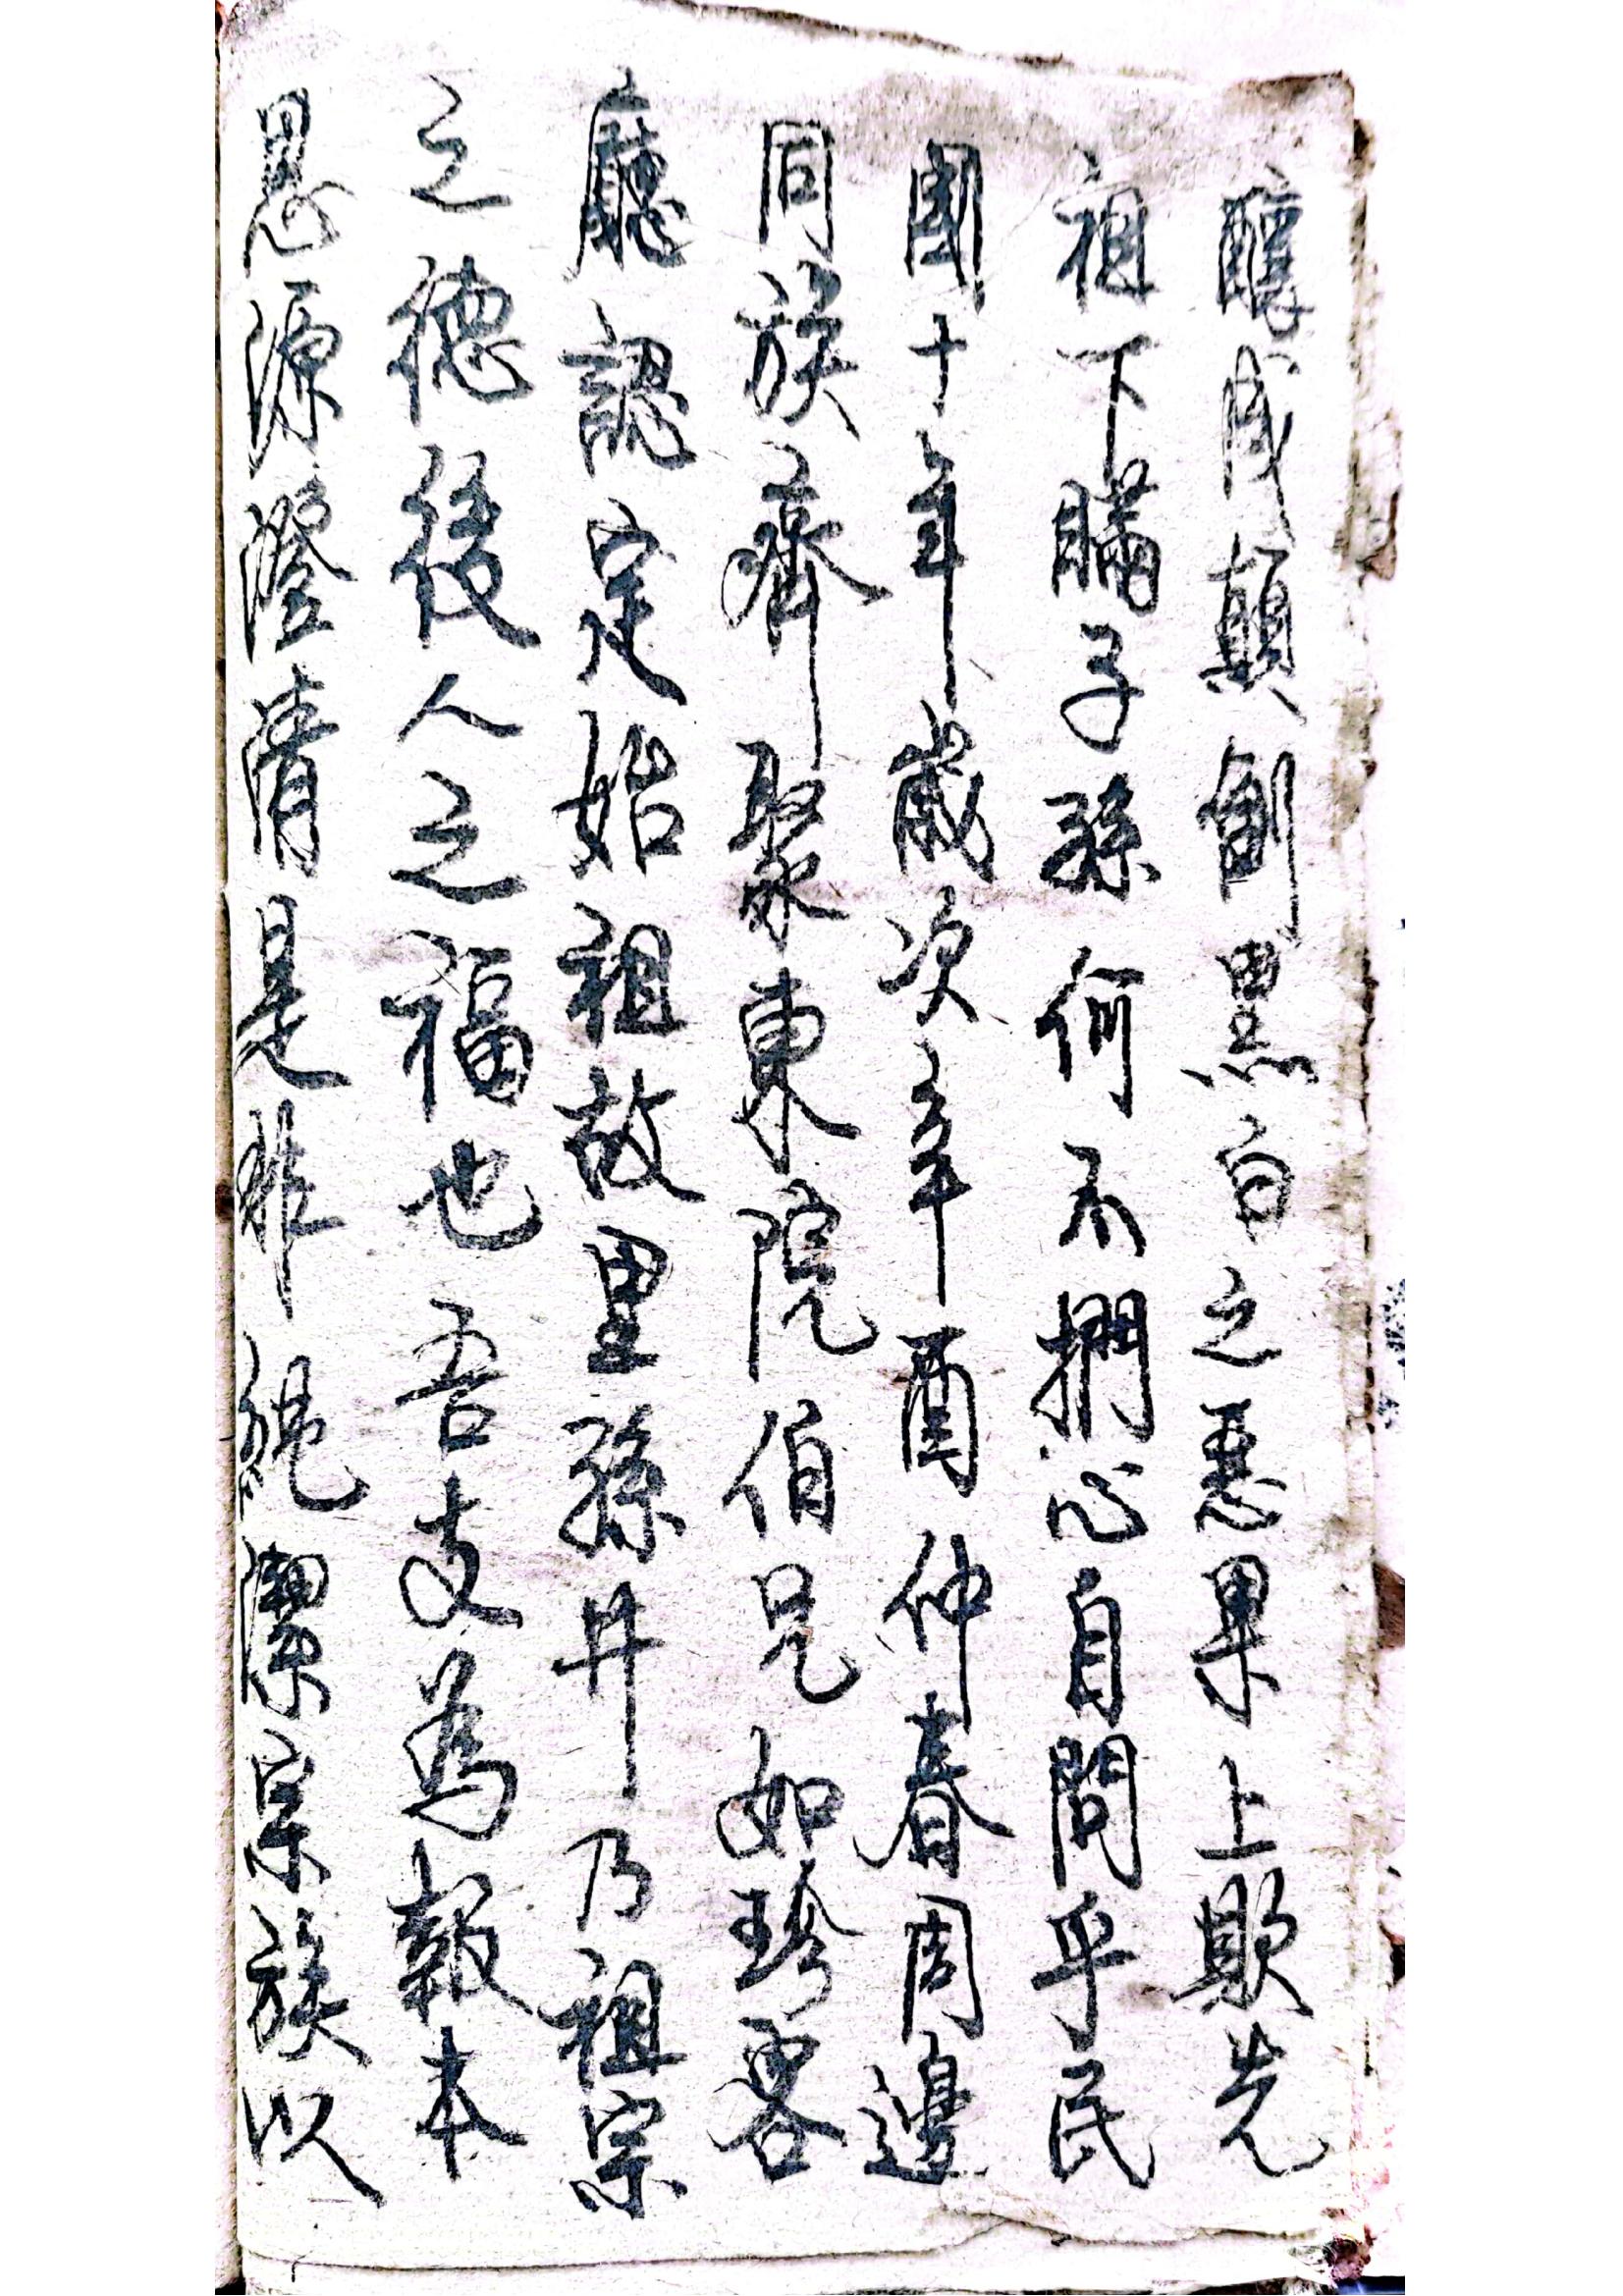 釀成顛倒黑白之惡果上欺先
祖下瞞子孫何不捫心自問乎民
國十年歲次辛酉仲春周邊
同族齊聚東院伯兄如珍客
廳認定始祖故里孫井乃祖宗
之德後人之福也吾支為報本
思源澄清是非純潔宗族以